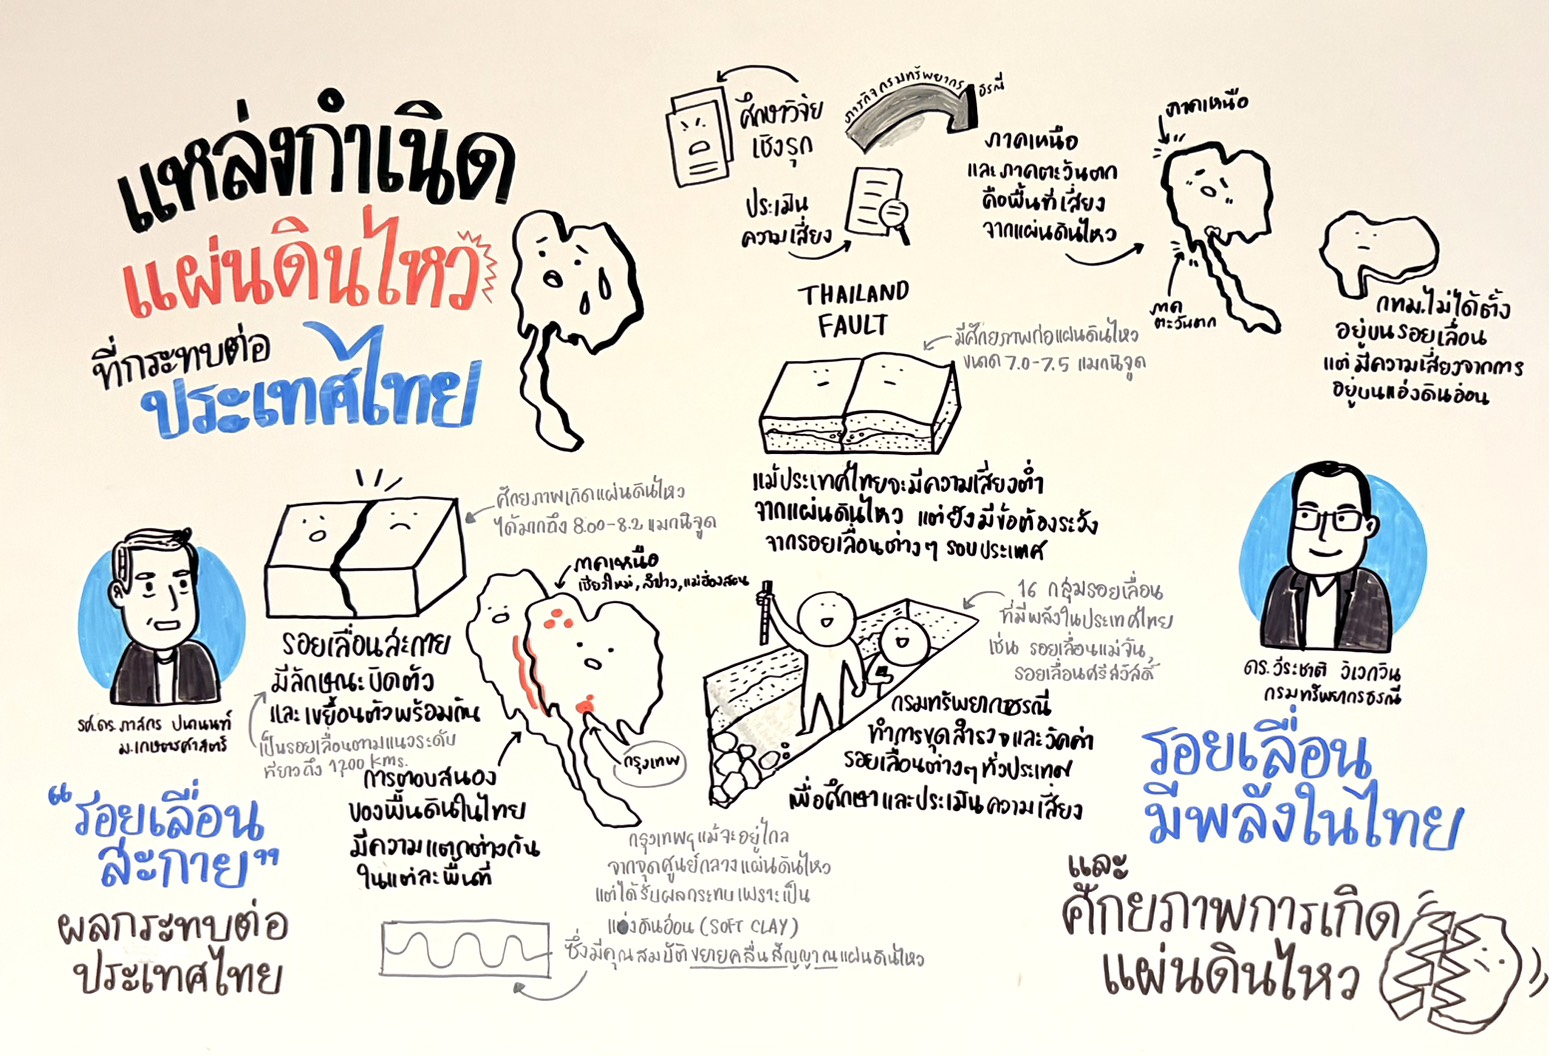 แหล่งกำเนิด
แผ่นดินไหว
ที่กระทบต่อ
ประเทศไทย
ศึกษาวิจัย
เชิงรุก
ประเมิน
ความเสี่ยง
ภารกิจกรมทรัพยากร
ธรณี
ภาคเหนือ
และภาคตะวันตก
คือพื้นที่เสี่ยง
จากแผ่นดินไหว
ภาคเหนือ
ภาค
ตะวันตก
กทม.ไม่ได้ตั้ง
อยู่บนรอยเลื่อน
แต่มีความเสี่ยงจากการ
อยู่บนแอ่งดินอ่อน
THAILAND
FAULT
มีศักยภาพก่อแผ่นดินไหว
ขนาด 7.0-7.5 แมกนิจูด
แม้ประเทศไทยจะมีความเสี่ยงต่ำ
จากแผ่นดินไหว แต่ยังมีข้อต้องระวัง
จากรอยเลื่อนต่างๆ รอบประเทศ
16 กลุ่มรอยเลื่อน
ที่มีพลังในประเทศไทย
เช่น รอยเลื่อนแม่จัน,
รอยเลื่อนศรีสวัสดิ์
กรมทรัพยากรธรณี
ทำการขุดสำรวจและวัดค่า
รอยเลื่อนต่างๆทั่วประเทศ
เพื่อศึกษาและประเมินความเสี่ยง
ดร.วีระชาติ วิเวกวิน
กรมทรัพยากรธรณี
รอยเลื่อน
มีพลังในไทย
และ
ศักยภาพการเกิด
แผ่นดินไหว
รศ.ดร.ภาสกร ปนานนท์
ม.เกษตรศาสตร์
"รอยเลื่อน
สะกาย"
ผลกระทบต่อ
ประเทศไทย
ศักยภาพเกิดแผ่นดินไหว
ได้มากถึง 8.00-8.2 แมกนิจูด
รอยเลื่อนสะกาย
มีลักษณะบิดตัว
และเขยื้อนตัวพร้อมกัน
เป็นรอยเลื่อนตามแนวระดับ
ที่ยาวถึง 1,200 kms.
ภาคเหนือ
เชียงใหม่, ลำปาง, แม่ฮ่องสอน
กรุงเทพ
การตอบสนอง
ของพื้นดินในไทย
มีความแตกต่างกัน
ในแต่ละพื้นที่
กรุงเทพฯแม้จะอยู่ไกล
จากจุดศูนย์กลางแผ่นดินไหว
แต่ได้รับผลกระทบเพราะเป็น
แอ่งดินอ่อน (SOFT CLAY)
ซึ่งมีคุณสมบัติขยายคลื่นสัญญาณแผ่นดินไหว